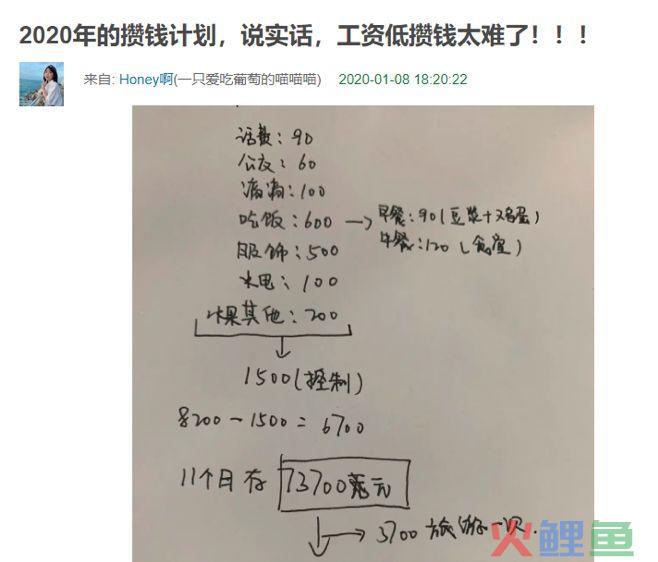 2020年的攒钱计划，说实话，工资低攒钱太难了！！！
来自: Honey啊(一只爱吃葡萄的喵喵喵) 2020-01-08 18:20:22
话费：90
公交：60
滴滴：100
吃饭：600 → 早餐：90（豆浆+鸡蛋）
午餐：120（食堂）
服饰：500
水电：100
水果其他：200
1500（控制）
8200-1500=6700
11个月存 73700元
→3700 旅游一次.
火鲤鱼